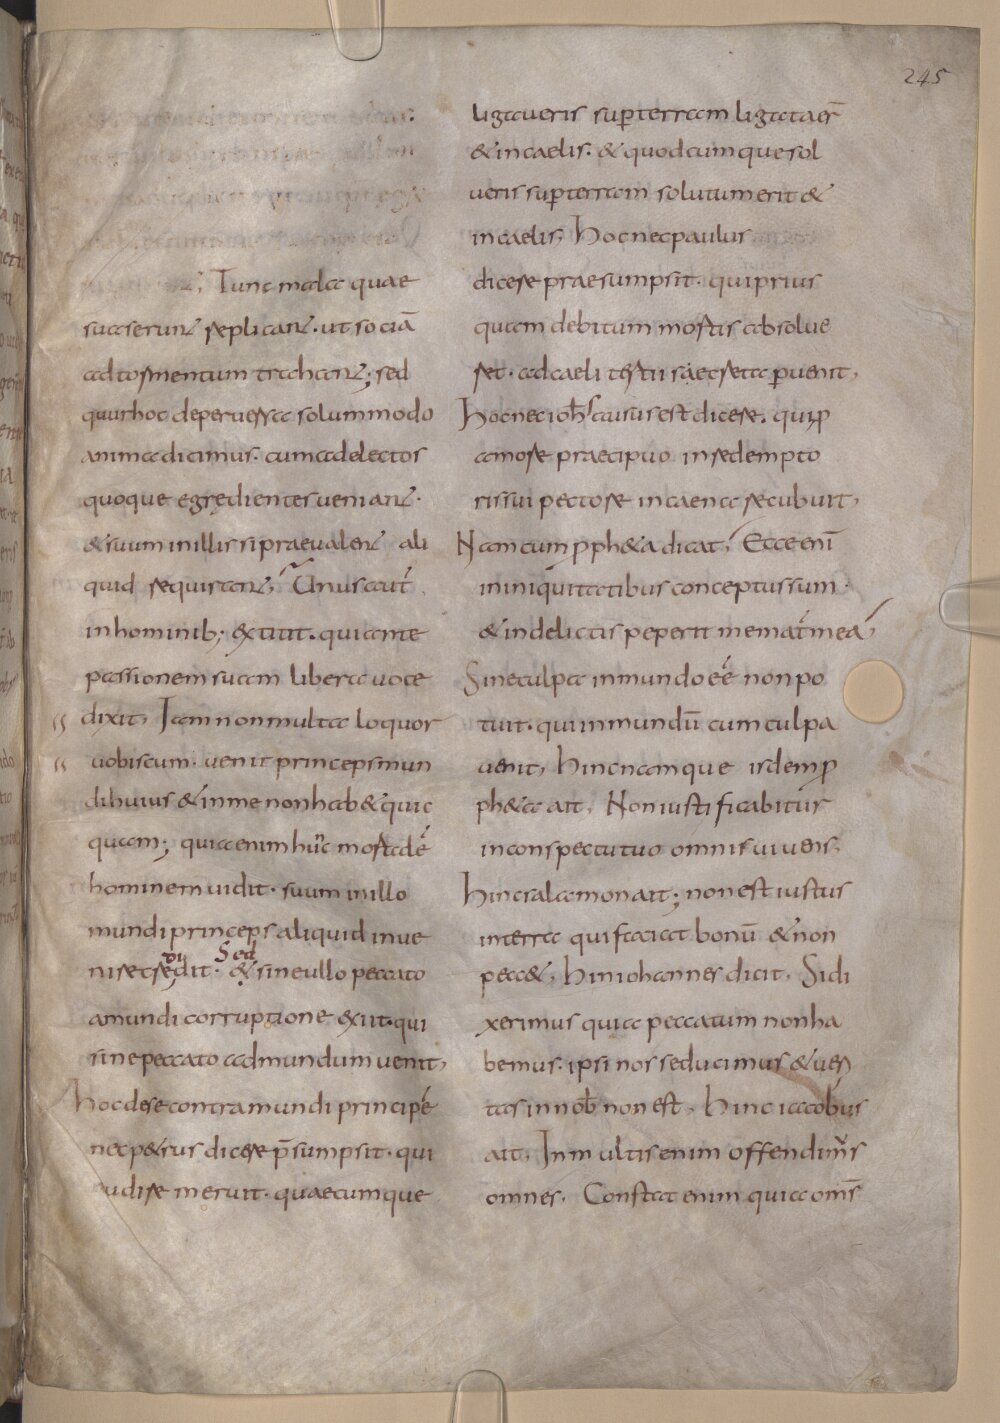 245
Tunc mala quae
suaserunt replicant · ut sociā
ad tormentum trahant; sed
quur hoc de peruersa solummodo
anima dicimus · cum ad electos
quoque egredientes ueniant ·
& suum in illis si praeualent ali
quid requirant; Unus aut́
in hominib; extitit · qui ante
passionem suam libera uoce
dixit, Iam non multa loquor
uobiscum · uenit princeps mun
di huius & in me non hab& quic
quam; quia enim hūc mortalē
hominem uidit · suum in illo
mundi princeps aliquid inue
nire se credidit · Sed & sine ullo peccato
a mundi corruptione exiit · qui
sine peccato ad mundum uenit,
hoc de se contra mundi principē
nec p&rus dicere p̄sumpsit · qui
audire meruit · quaecumque
ligaueris sup terram ligata er̄
& in caelis · & quodcumque sol
ueris sup terram solutum erit &
in caelis, hoc nec paulus
dicere praesumpsit · qui prius
quam debitum mortis absolue
ret · ad caeli tertii secreta puenit,
hoc nec ioh̄s ausus est dicere · qui p
amore praecipuo in redempto
ris sui pectore in caena recubuit,
Nam cum pph&a dicat, Ecce enī
in iniquitatibus conceptus sum ·
& in delictis peperit me mat́ meā,
Sine culpa in mundo eē non po
tuit · qui in mundū cum culpa
uenit, hinc namque isdem p
ph&a ait, Non iustificabitur
in conspectu tuo omnis uiuens,
hinc salamon ait; non est iustus
in terra qui faciat bonū & non
pecc&, hinc iohannes dicit, Si di
xerimus quia peccatum non ha
bemus · ipsi nos seducimus & ueri
tas in nob̄ non est, hinc iacobus
ait, In multis enim offendim's
omnes, Constat enim quia om̄s